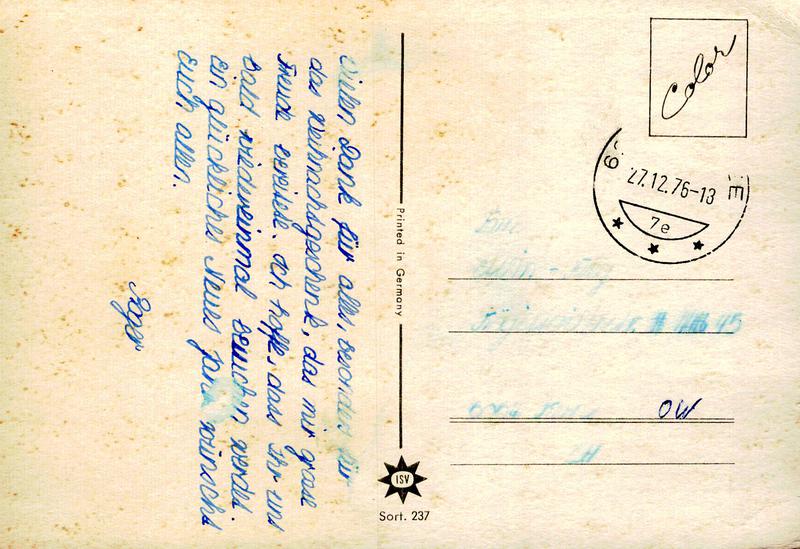 Vielen Dank für alles, besonders für
das Weihnachtsgeschenk, das mir grose
Freude bereitete. Ich hoffe, dass Ihr uns
bald wiedereinmal besuchen werdet.
Ein glückliches Neues Jahr wünscht
euch allen.
Roger
Printed in Germany
ISV
Sort. 237
Color
27.12.76-13
E
7e
45
OW